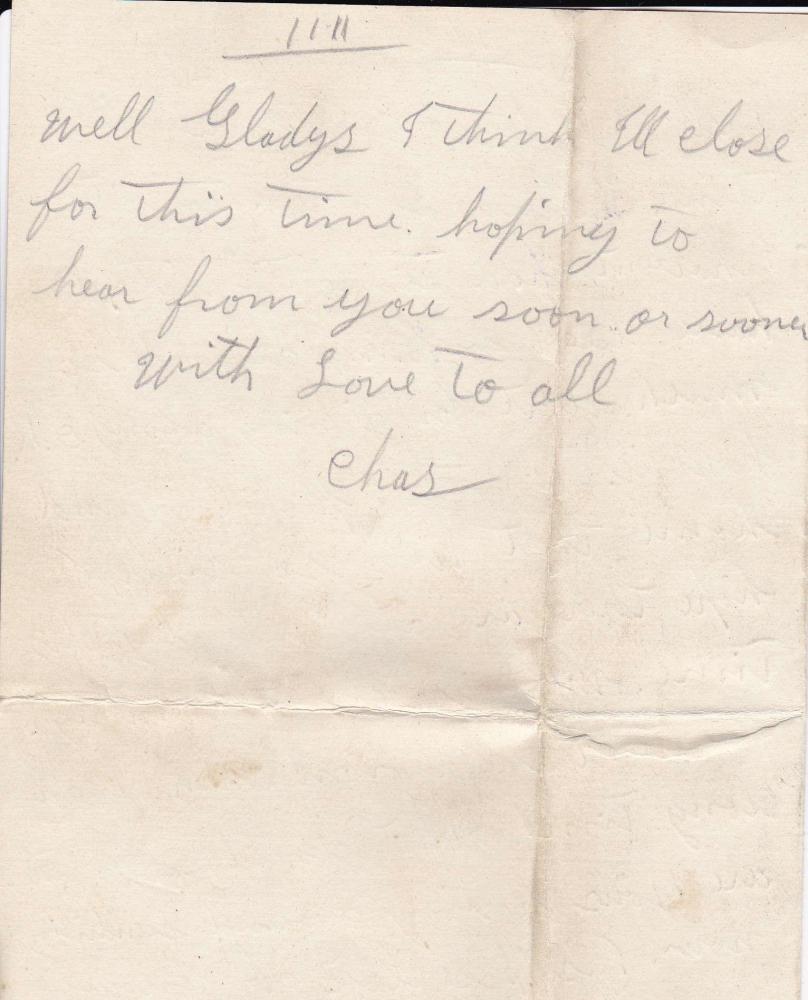 1111
well Gladys I think Ill close
for this time. hoping to
hear from you soon or sooner
with Love to all
Chas